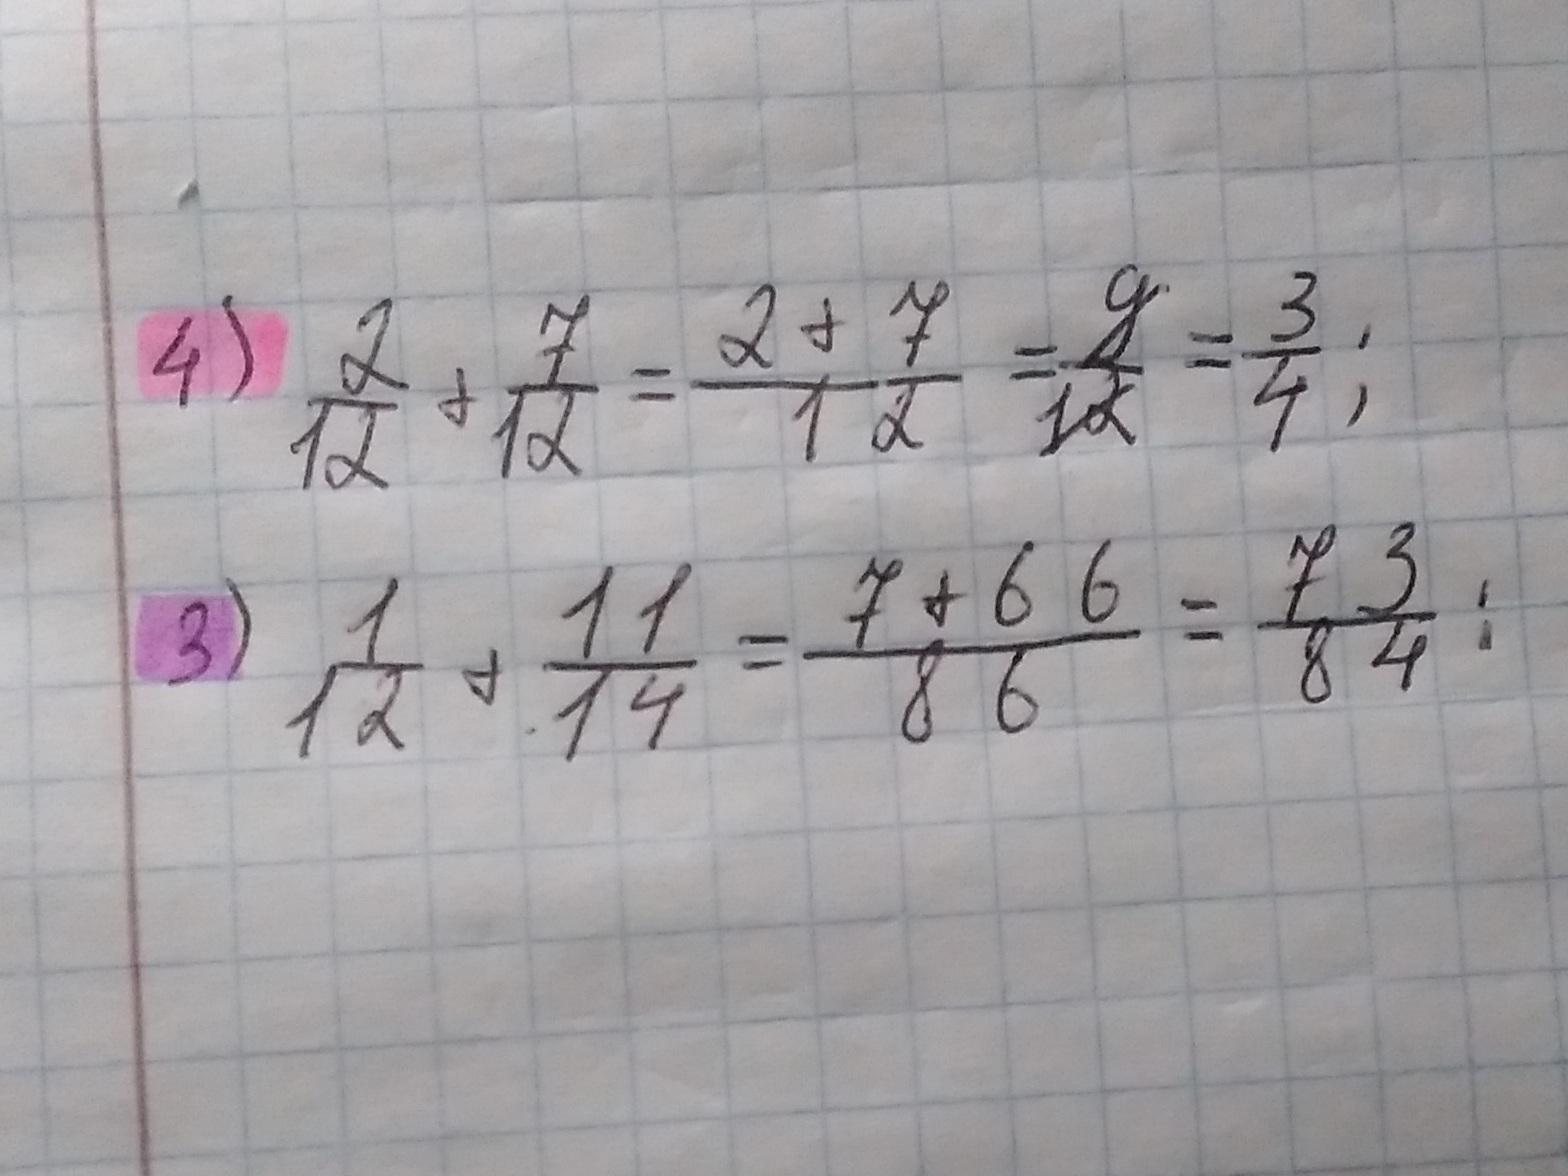 4) 2/12 + 7/12 = 2+7/12 = 9/12 = 3/4;
3) 1/12 + 11/14 = 7+66/86 = 73/84;